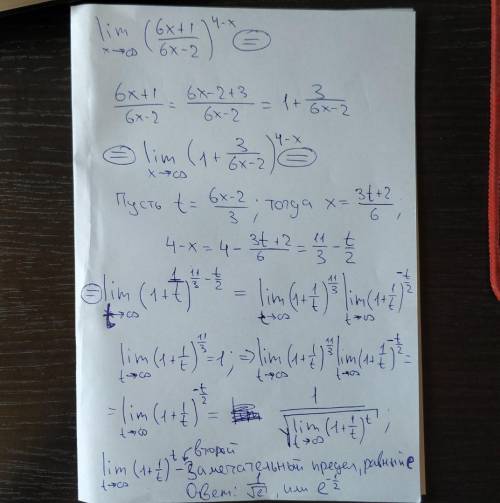 lim x→∞ (6x+1 / 6x-2)^4-x =
6x+1 / 6x-2 = 6x-2+3 / 6x-2 = 1 + 3 / 6x-2
= lim x→∞ (1 + 3 / 6x-2)^4-x =
Пусть t = 6x-2 / 3 ; тогда x = 3t+2 / 6 ,
4-x = 4 - 3t+2 / 6 = 11/3 - t/2
= lim t→∞ (1 + 1/t)^11/3 - t/2 = lim t→∞ (1 + 1/t)^11/3 lim t→∞ (1 + 1/t)^-t/2
lim t→∞ (1 + 1/t)^11/3 = 1 ; ⇒ lim t→∞ (1 + 1/t)^11/3 lim t→∞ (1 + 1/t)^-t/2 =
= lim t→∞ (1 + 1/t)^-t/2 = 1 / √lim t→∞ (1 + 1/t)^t ;
lim t→∞ (1 + 1/t)^t - второй замечательный предел, равный e
Ответ: 1/√e, или e^-1/2